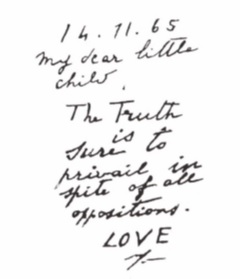 14.11.65
My dear little
child,
The Truth
is
sure to
privail in
spite of all
oppositions.
LOVE